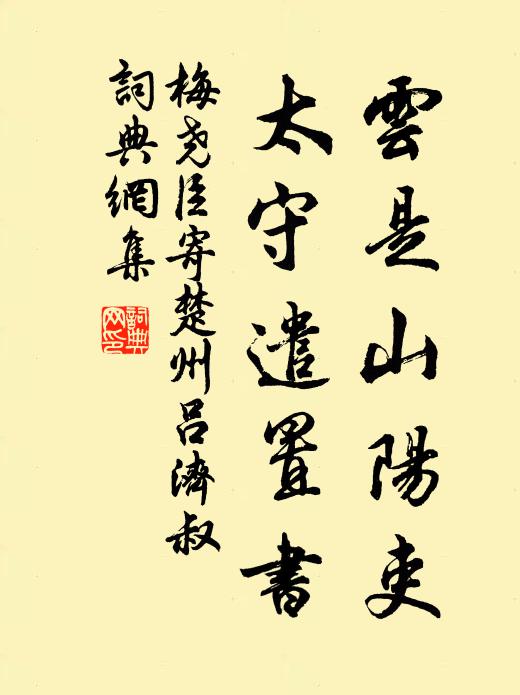 雲是山陽吏
太守遣置書
梅尧臣寄楚州吕濟叔
詞典網集
詞典
网印